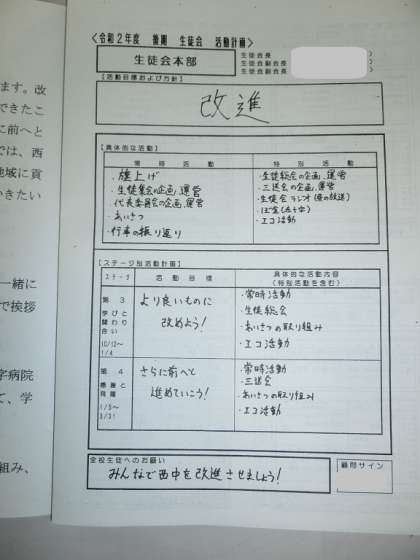 ます。改
できたこ
に前へと
では、西
地域に貢
いきたい
一緒に
で挨拶
字病院
て、学
組み、
<令和2年度 後期 生徒会 活動計画>
生徒会本部
生徒会長
生徒会副会長
生徒会副会長
【活動目標および方針】
改進
【具体的な活動】
常時活動
特別活動
・旗上げ
・生徒集会の企画、運営
・代表委員会の企画、運営
・あいさつ
・行事の振り返り
・生徒総会の企画、運営
・三送会の企画、運営
・生徒会ラジオ(昼の放送)
・ぼ金(赤十字)
・エコ活動
【ステージ別活動計画】
ステージ
活動目標
具体的な活動内容
(特別活動を含む)
第3
学びと
関わり
合い
10/12~
1/4
より良いものに
改めよう!
・常時活動
・生徒総会
・あいさつの取り組み
・エコ活動
第4
感謝と
飛躍
1/5~
3/31
さらに前へと
進めていこう!
・常時活動
・三送会
・あいさつの取り組み
・エコ活動
全校生徒へのお願い
みんなで西中を改進させましょう!
顧問サイン